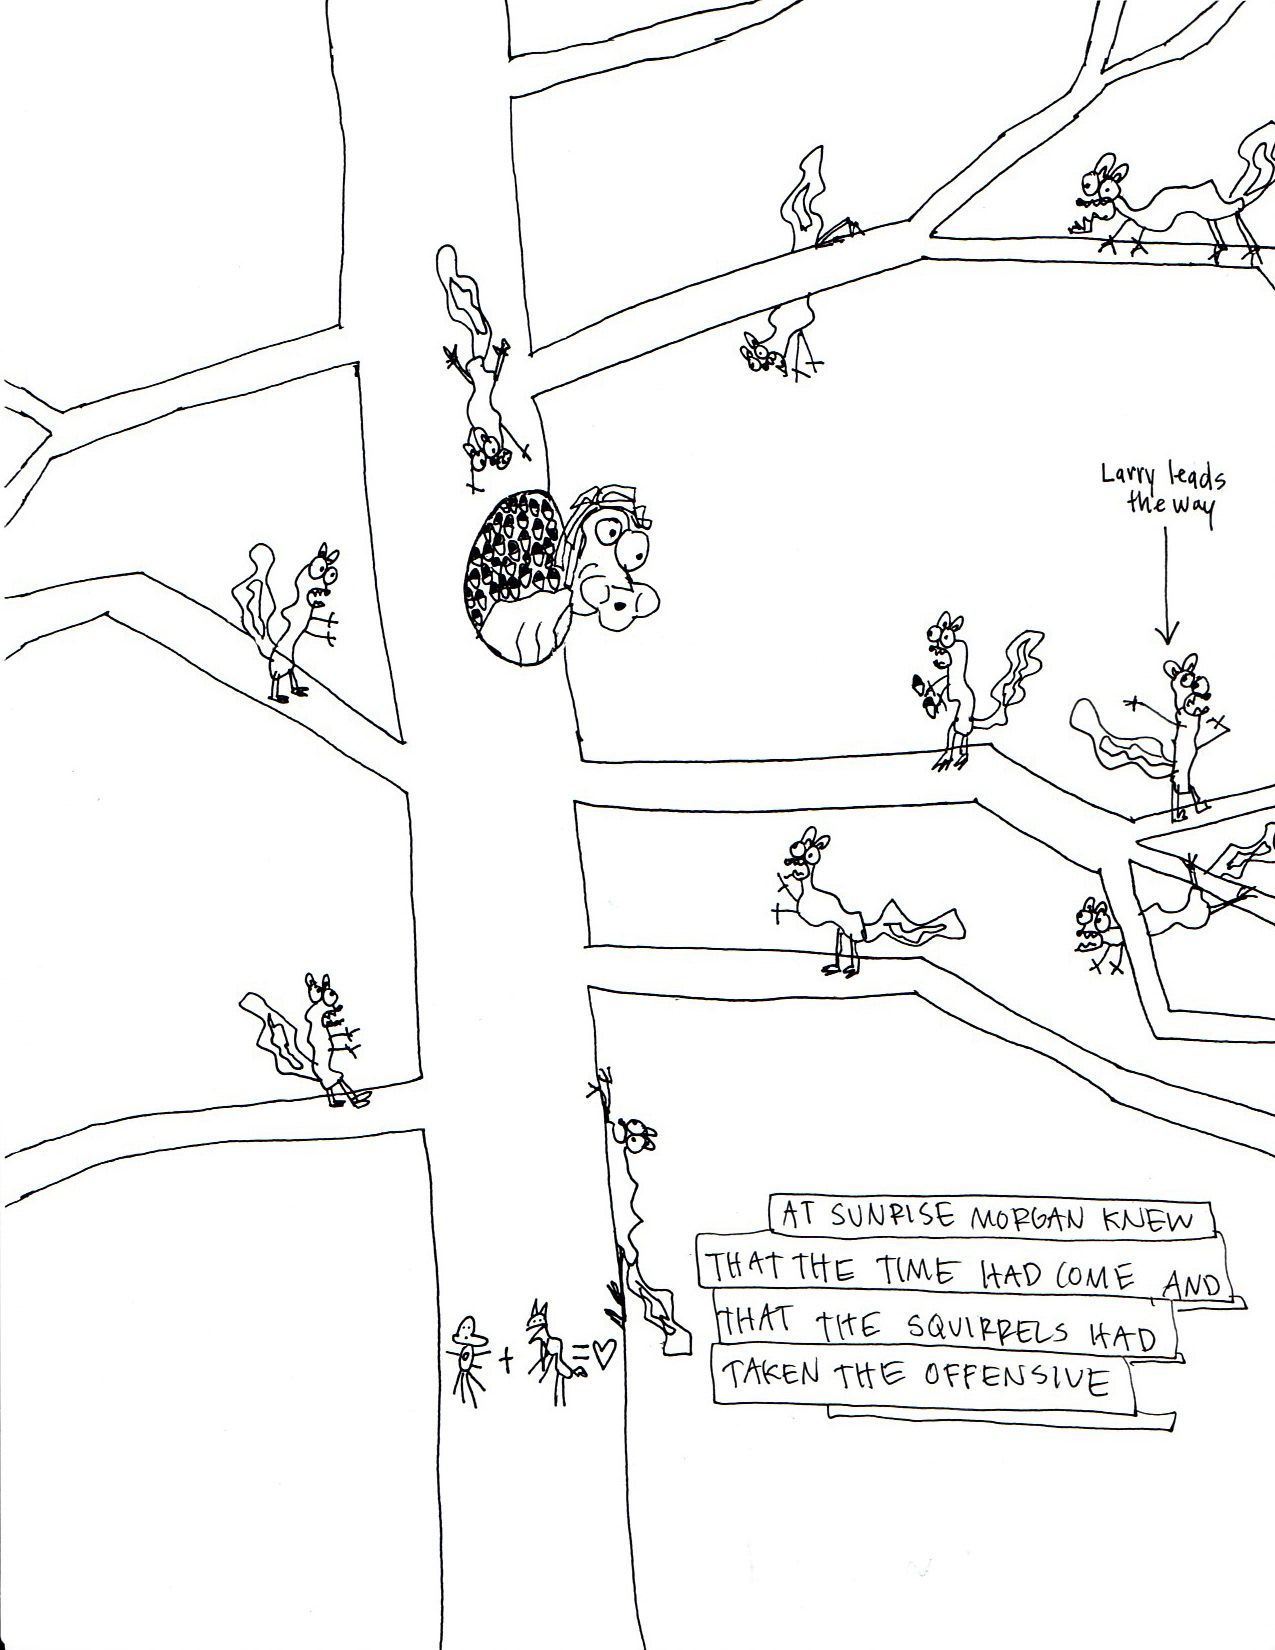 Larry leads
the way
AT SUNRISE MORGAN KNEW
THAT THE TIME HAD COME AND
THAT THE SQUIRRELS HAD
TAKEN THE OFFENSIVE
+ =♡